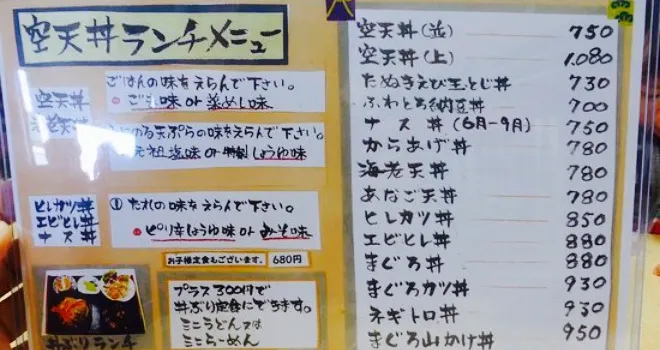 空天丼ランチメニュー
空天丼
海老天丼
ごはんの味をえらんで下さい。
ごま味 or 菜めし味
天ぷらの味をえらんで下さい。
元祖塩味 or 特製しょうゆ味
ヒレカツ丼
エビヒレ丼
ナス丼
① たれの味をえらんで下さい。
ピリ辛しょうゆ味 or みそ味
お子様定食もございます。 680円
プラス300円で
丼ぶり定食にできます。
ミニうどん又は
ミニらーめん
丼ぶりランチ
空天丼(並) 750
空天丼(上) 1.080
たぬきえび玉とじ丼 730
ふわとろ納豆丼 700
ナス丼(6月-9月) 750
からあげ丼 780
海老天丼 780
あなご天丼 780
ヒレカツ丼 850
エビヒレ丼 880
まぐろ丼 880
まぐろカツ丼 930
ネギトロ丼 930
まぐろ山かけ丼 950